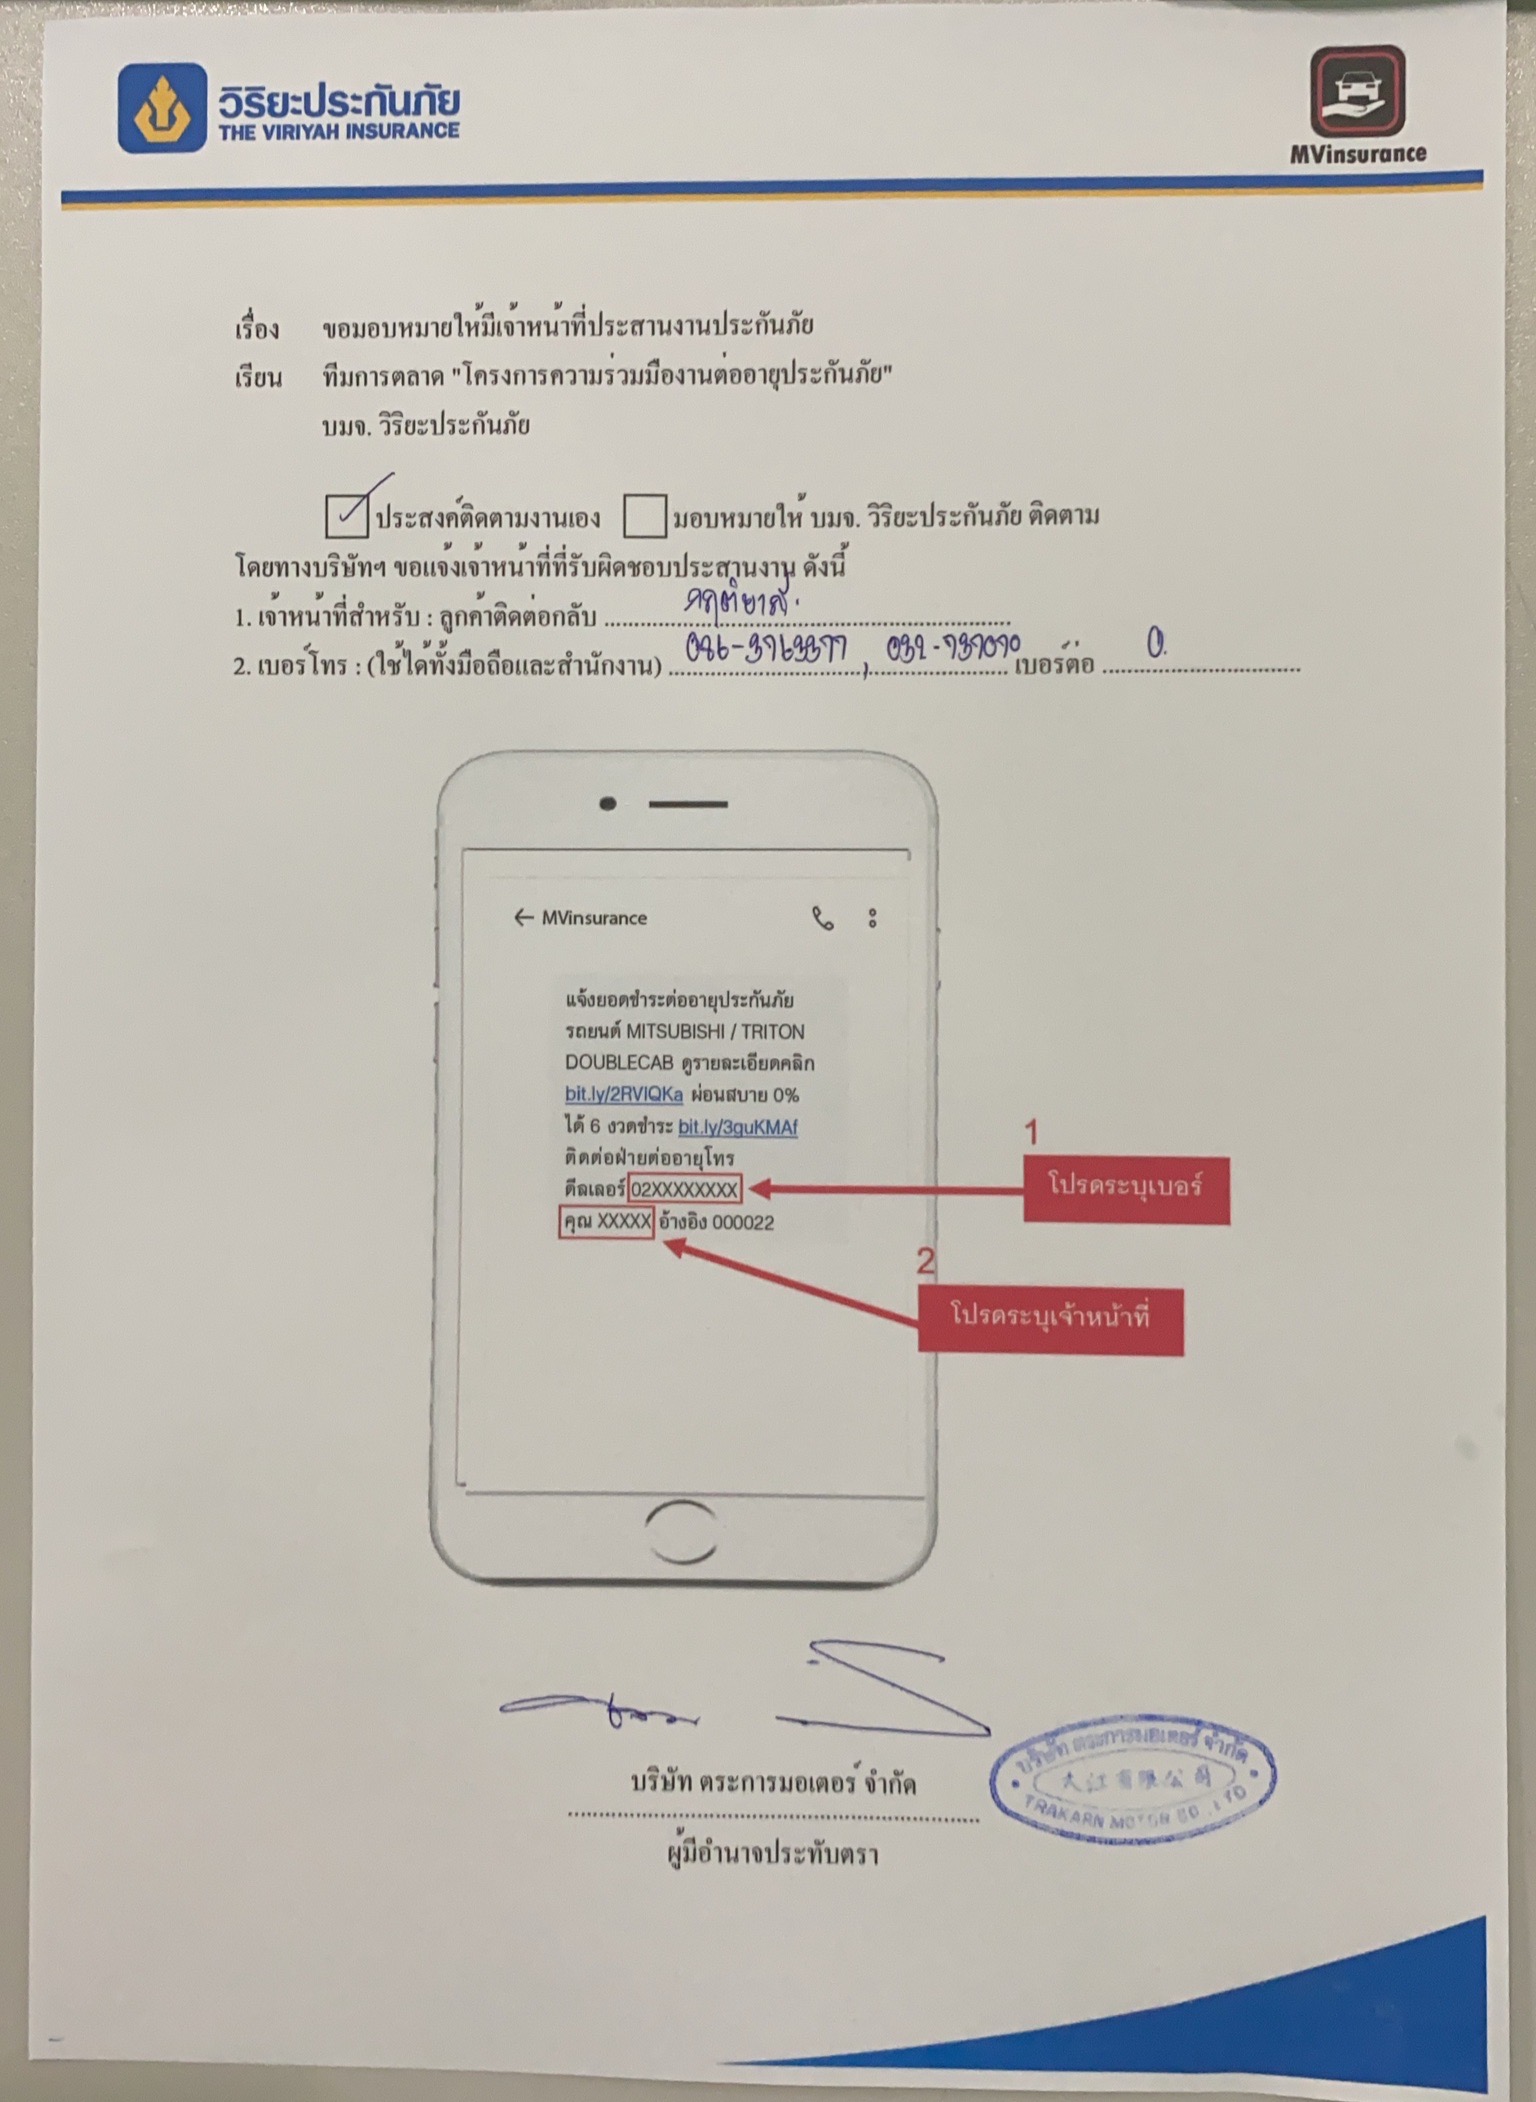 วิริยะประกันภัย
THE VIRIYAH INSURANCE
MVinsurance
เรื่อง ขอมอบหมายให้มีเจ้าหน้าที่ประสานงานประกันภัย
เรียน ทีมการตลาด "โครงการความร่วมมืองานต่ออายุประกันภัย"
บมจ. วิริยะประกันภัย
ประสงค์ติดตามงานเอง มอบหมายให้ บมจ. วิริยะประกันภัย ติดตาม
โดยทางบริษัทฯ ขอแจ้งเจ้าหน้าที่ที่รับผิดชอบประสานงาน ดังนี้
1. เจ้าหน้าที่สำหรับ : ลูกค้าติดต่อกลับ ...............
2. เบอร์โทร : (ใช้ได้ทั้งมือถือและสำนักงาน) ............... เบอร์ต่อ 0.
← MVinsurance
แจ้งยอดชำระต่ออายุประกันภัย
รถยนต์ MITSUBISHI / TRITON
DOUBLECAB ดูรายละเอียดคลิก
bit.ly/2RVIQKa ผ่อนสบาย 0%
ได้ 6 งวดชำระ bit.ly/3guKMAf
ติดต่อฝ่ายต่ออายุโทร
ดีลเลอร์ 02XXXXXXXX
คุณ XXXXX อ้างอิง 000022
1
โปรดระบุเบอร์
2
โปรดระบุเจ้าหน้าที่
บริษัท ตระการมอเตอร์ จำกัด
ผู้มีอำนาจประทับตรา
บริษัท ตระการมอเตอร์ จำกัด
大江有限公司
TRAKARN MOTOR CO.,LTD